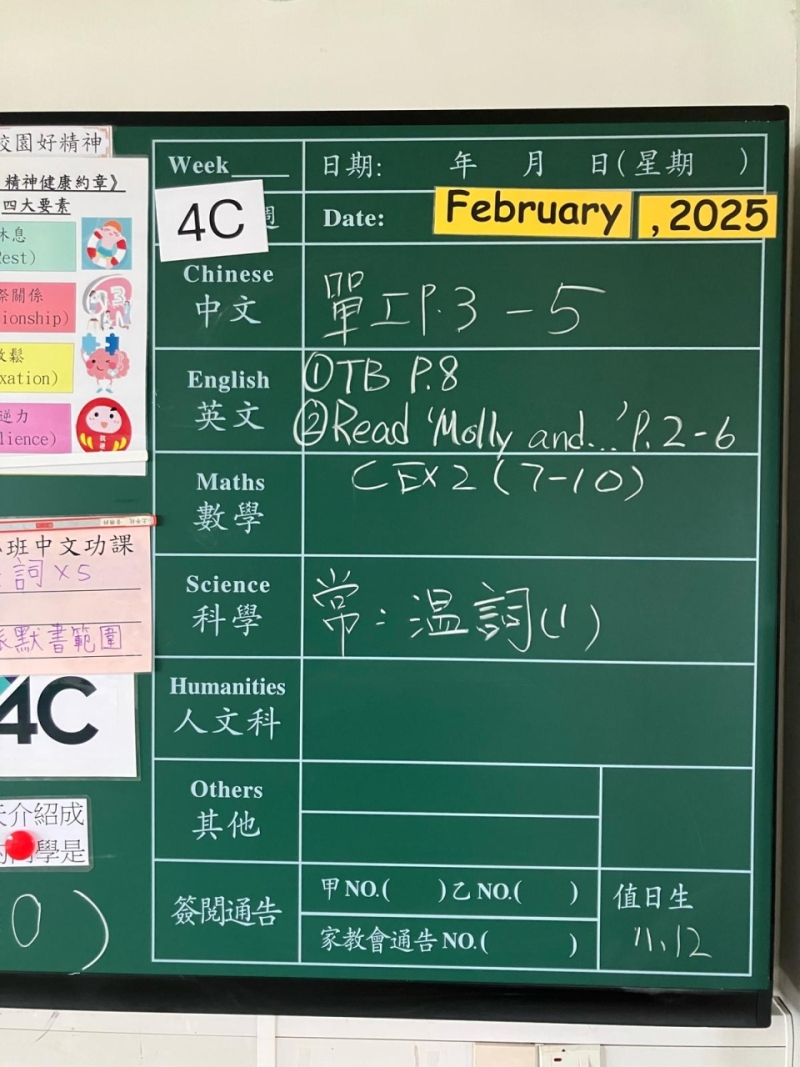 校園好精神
精神健康約章》
四大要素
休息
est)
際關係
ionship)
放鬆
xation)
逆力
lience)
班中文功課
詞×5
默書範圍
4C
介紹成
學是
0 )
Week
日期: 年 月 日(星期 )
4C
週
Date:
February , 2025
Chinese
中文
單工P.3-5
English
英文
①TB P.8
②Read 'Molly and...' P.2-6
Maths
數學
CEX2(7-10)
Science
科學
常:温詞(1)
Humanities
人文科
Others
其他
簽閱通告
甲NO.( )乙NO.( )
家教會通告NO.( )
值日生
11、12